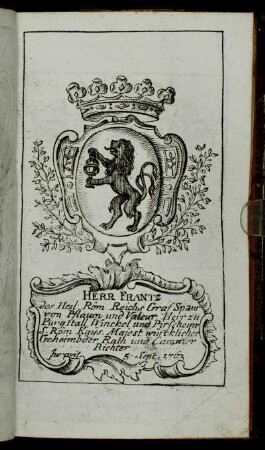 HERR FRANTZ
des Heil. Röm Reichs Graf Spaur
von Pflaum und Valeur, Herr zu
Burgstall Winckel und
S. Röm Kaÿs. Majest würcklicher
Geheimbder Rath und Cammer
Richter
jur avit 5 Sept. 1763